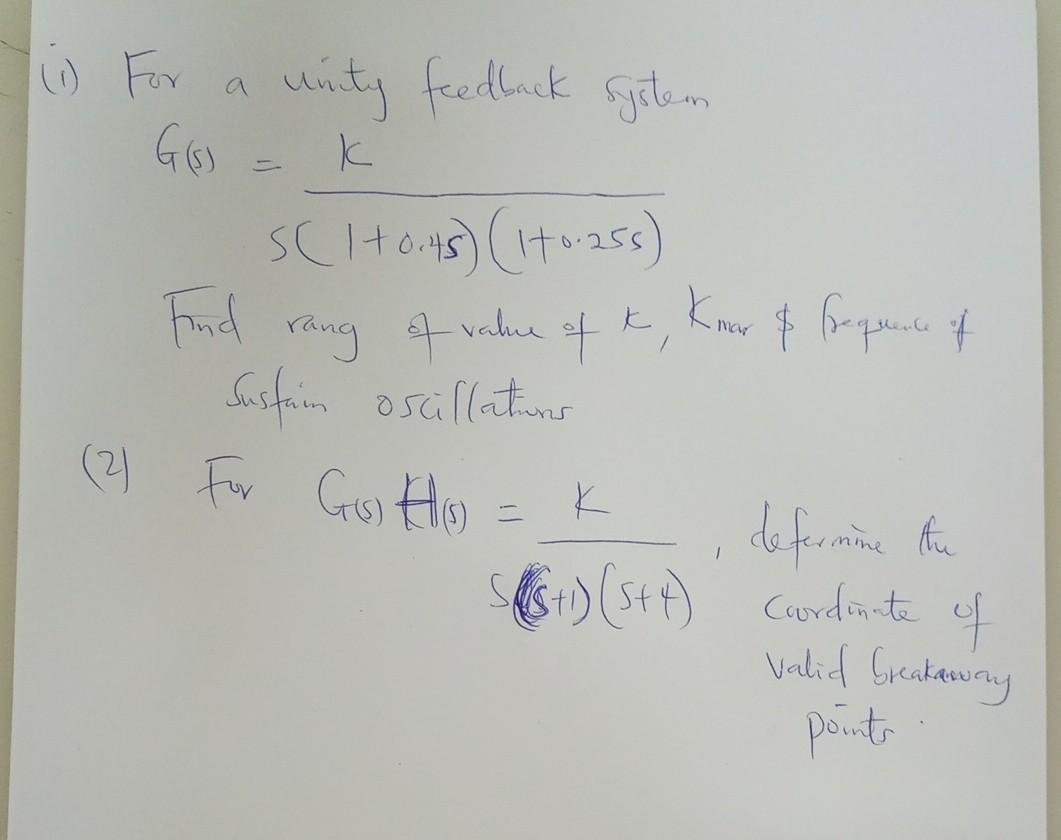 (1) For a unity feedback system
G(s) = K
s(1+0.4s)(1+0.25s)
Find rang of value of K, Kmar $ frequence of
Sustain oscillations
(2) For G(s) H(s) = K
s(s+1)(s+4)
, determine the
Coordinate of
valid breakaway
points.